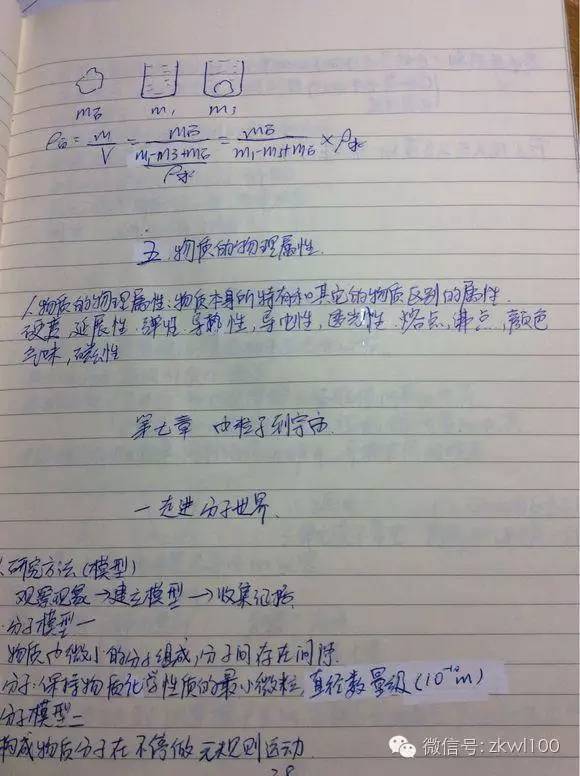 m石 m₁ m₃
ρ石 = m/V = m石/((m₁-m3+m石)/ρ水) = m石/(m₁-m₃+m石) × ρ水
五. 物质的物理属性.
1.物质的物理属性:物质本身所特有和其它的物质区别的属性.
硬度,延展性.弹性.导热性,导电性,透光性.熔点,沸点,颜色
气味,磁性
第七章 由粒子到宇宙.
一 走进分子世界.
研究方法(模型)
观察现象→建立模型→收集证据
分子模型一
物质由微小的分子组成,分子间存在间隙.
分子:保持物质化学性质的最小微粒,直径数量级(10⁻¹⁰m)
分子模型二
构成物质分子在不停做无规则运动
28
微信号: zkwl100